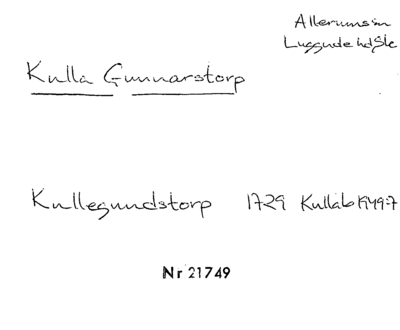 Allerums sn
Luggude hd Sk
Kulla Gunnarstorp
Kullegundstorp 1729 Kullab 1949:7
Nr 21749